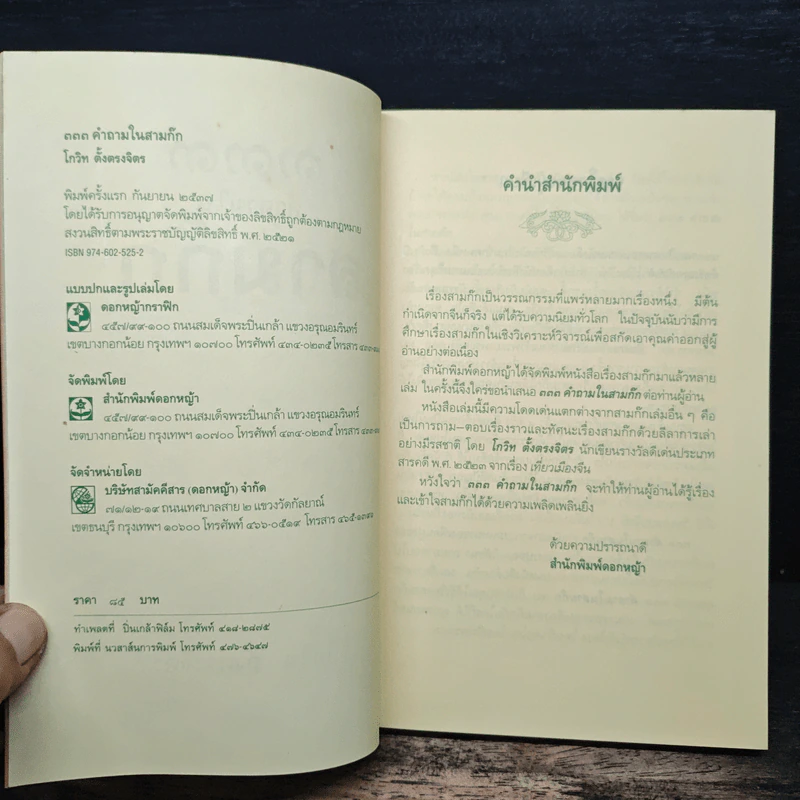 ๓๓๓ คำถามในสามก๊ก
โกวิท ตั้งตรงจิตร
พิมพ์ครั้งแรก กันยายน ๒๕๓๗
โดยได้รับการอนุญาตจัดพิมพ์จากเจ้าของลิขสิทธิ์ถูกต้องตามกฎหมาย
สงวนสิทธิ์ตามพระราชบัญญัติลิขสิทธิ์ พ.ศ. ๒๕๒๑
ISBN 974-602-525-2
แบบปกและรูปเล่มโดย
ดอกหญ้ากราฟิก
๔๕๗/๙๙-๑๐๐ ถนนสมเด็จพระปิ่นเกล้า แขวงอรุณอมรินทร์
เขตบางกอกน้อย กรุงเทพฯ ๑๐๗๐๐ โทรศัพท์ ๔๓๔-๐๒๓๕ โทรสาร
จัดพิมพ์โดย
สำนักพิมพ์ดอกหญ้า
๔๕๗/๙๙-๑๐๐ ถนนสมเด็จพระปิ่นเกล้า แขวงอรุณอมรินทร์
เขตบางกอกน้อย กรุงเทพฯ ๑๐๗๐๐ โทรศัพท์ ๔๓๔-๐๒๓๕ โทรสาร
จัดจำหน่ายโดย
บริษัทสามัคคีสาร (ดอกหญ้า) จำกัด
๗๑/๑๒-๑๙ ถนนเทศบาลสาย ๒ แขวงวัดกัลยาณ์
เขตธนบุรี กรุงเทพฯ ๑๐๖๐๐ โทรศัพท์ ๔๖๖-๐๕๑๙ โทรสาร
ราคา ๘๕ บาท
ทำเพลตที่ ปิ่นเกล้าฟิล์ม โทรศัพท์ ๔๑๘-๒๘๗๕
พิมพ์ที่ นวสาส์นการพิมพ์ โทรศัพท์ ๔๗๖-๔๖๔๗
คำนำสำนักพิมพ์
เรื่องสามก๊กเป็นวรรณกรรมที่แพร่หลายมากเรื่องหนึ่ง มีต้น
กำเนิดจากจีนก็จริง แต่ได้รับความนิยมทั่วโลก ในปัจจุบันนับว่ามีการ
ศึกษาเรื่องสามก๊กในเชิงวิเคราะห์วิจารณ์เพื่อสกัดเอาคุณค่าออกสู่ผู้
อ่านอย่างต่อเนื่อง
สำนักพิมพ์ดอกหญ้าได้จัดพิมพ์หนังสือเรื่องสามก๊กมาแล้วหลาย
เล่ม ในครั้งนี้จึงใคร่ขอนำเสนอ ๓๓๓ คำถามในสามก๊ก ต่อท่านผู้อ่าน
หนังสือเล่มนี้มีความโดดเด่นแตกต่างจากสามก๊กเล่มอื่น ๆ คือ
เป็นการถาม–ตอบเรื่องราวและทัศนะเรื่องสามก๊กด้วยลีลาการเล่า
อย่างมีรสชาติ โดย โกวิท ตั้งตรงจิตร นักเขียนรางวัลดีเด่นประเภท
สารคดี พ.ศ. ๒๕๒๓ จากเรื่อง เที่ยวเมืองจีน
หวังใจว่า ๓๓๓ คำถามในสามก๊ก จะทำให้ท่านผู้อ่านได้รู้เรื่อง
และเข้าใจสามก๊กได้ด้วยความเพลิดเพลินยิ่ง
ด้วยความปรารถนาดี
สำนักพิมพ์ดอกหญ้า